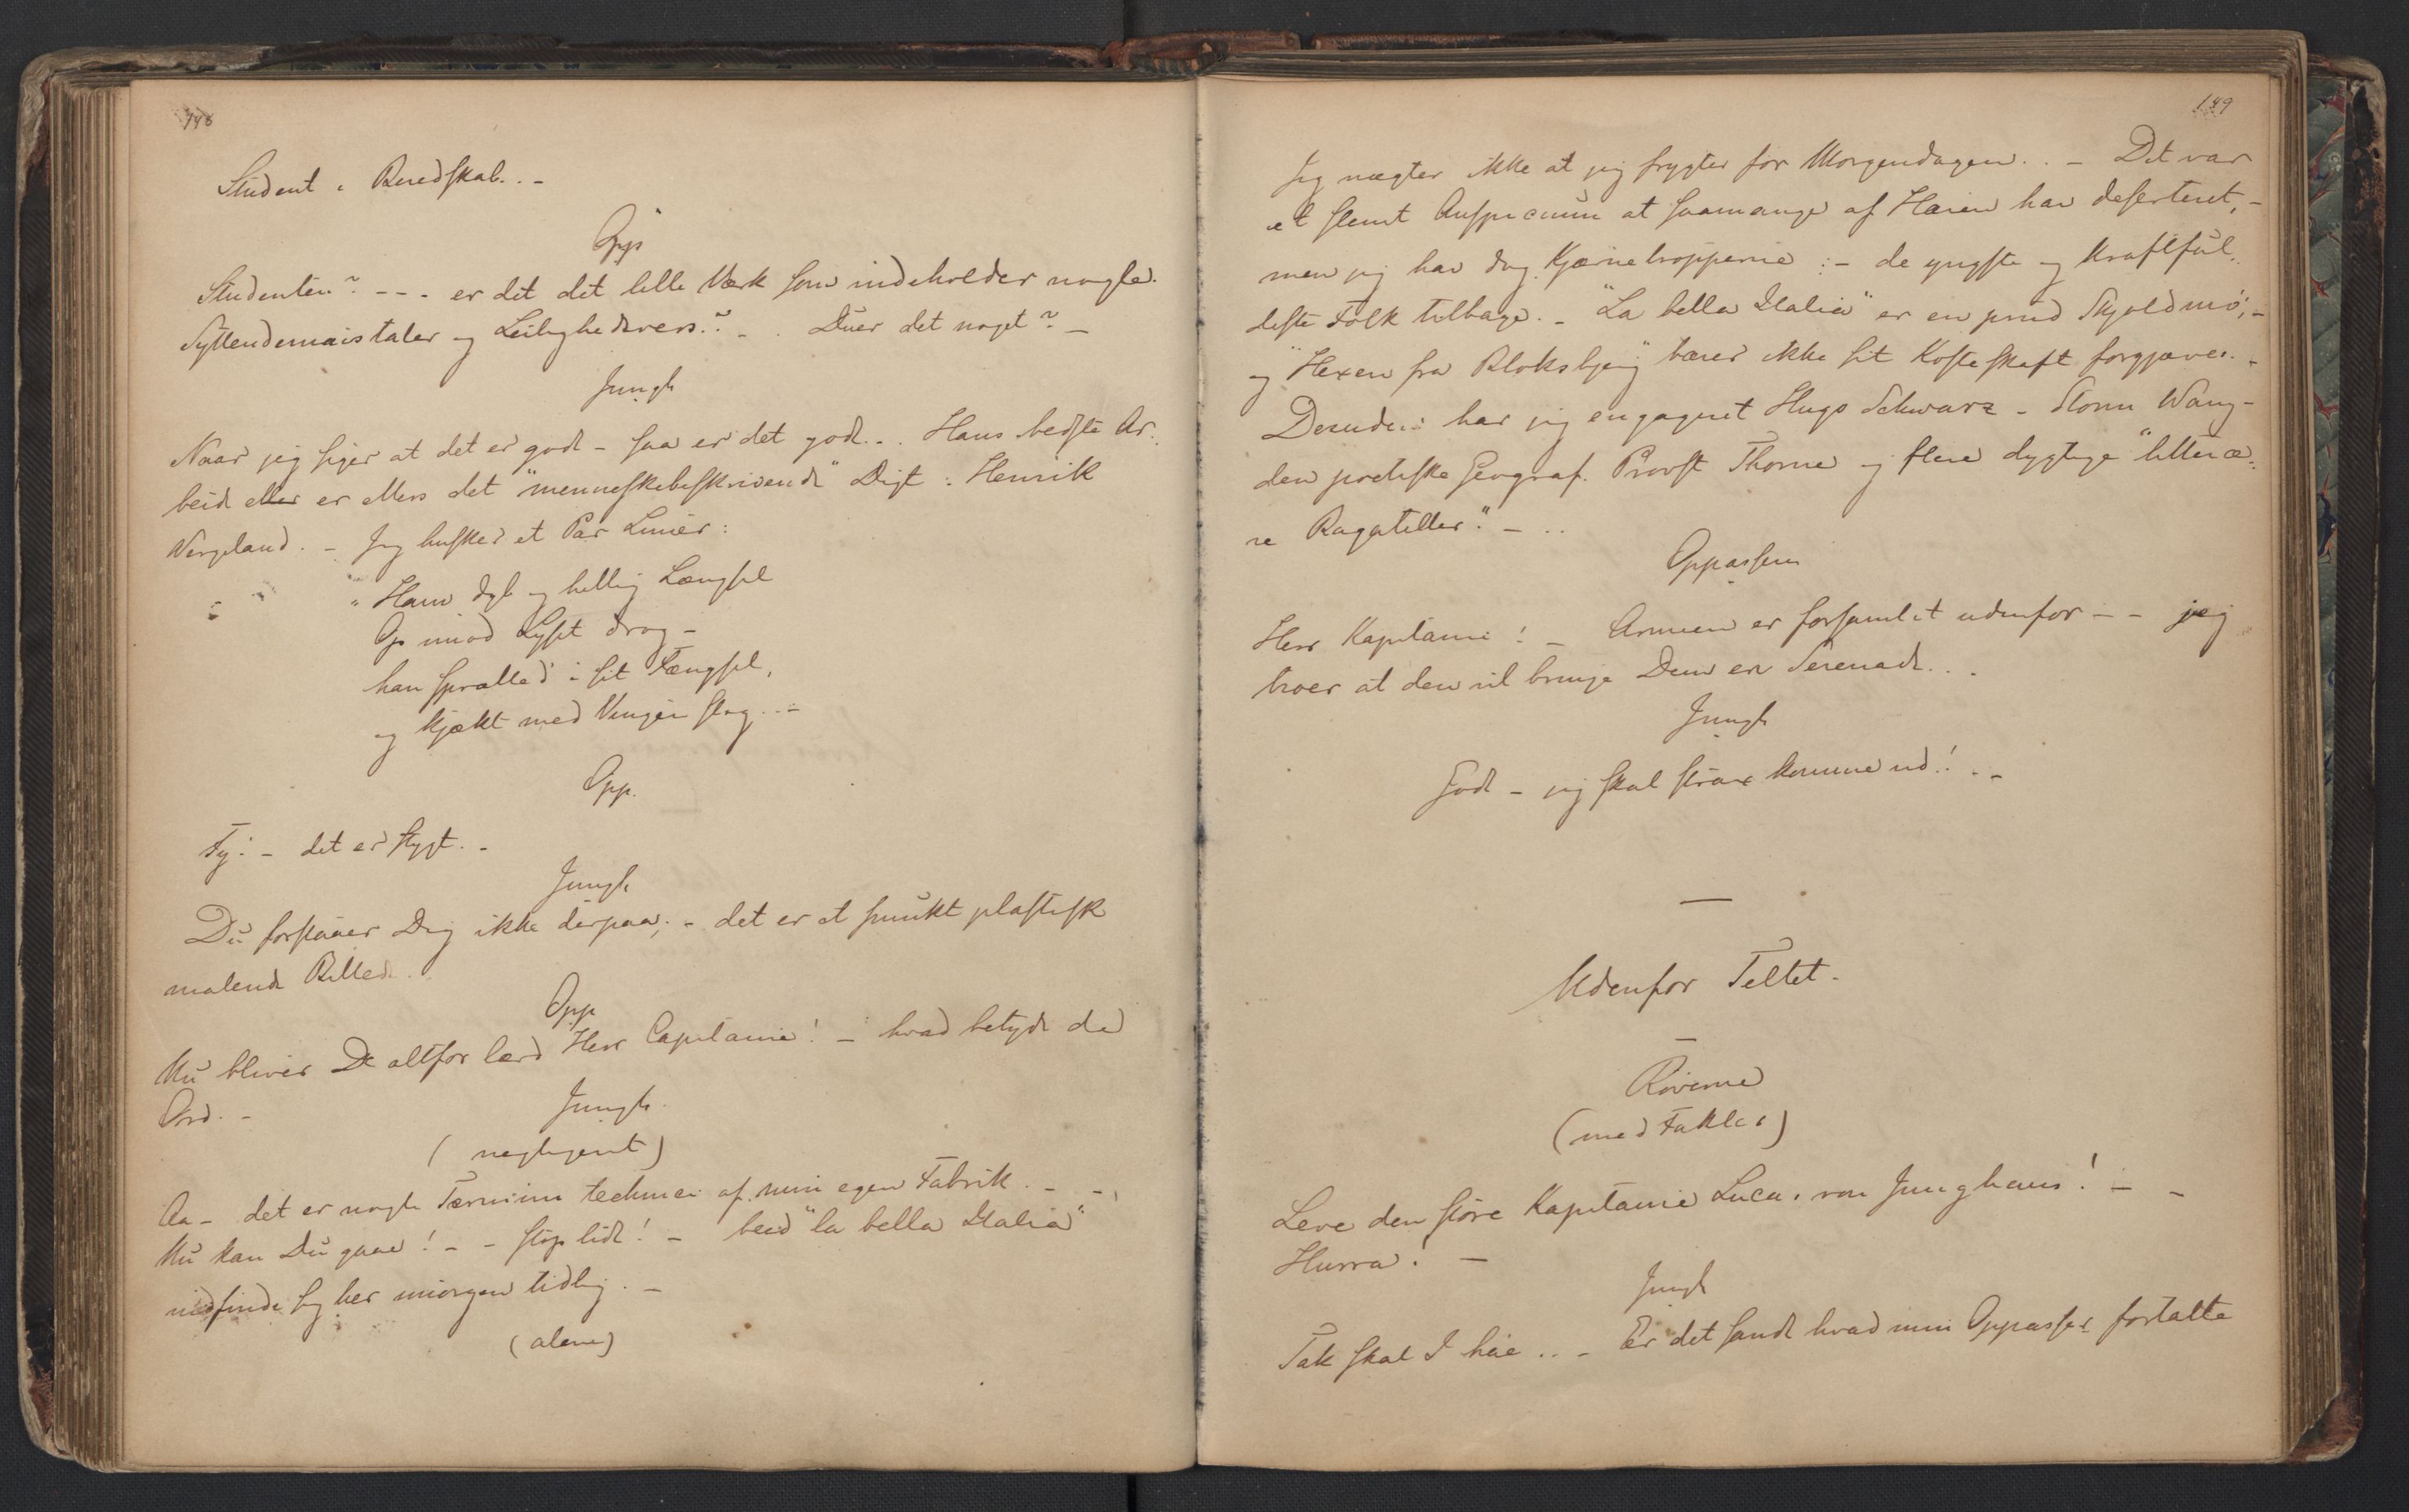 148
Student i Beredskab. . –
Opp
Studenten? - - . er det det lille Værk som indeholder nogle
Syttendemaistaler og Leilighedsvers.? – . Duer det noget? –
Jungh
Naar jeg siger at det er godt – saa er det godt. . . Hans bedste Ar:
beid eller er ellers det "menneskebeskrivende" Digt: Henrik
Wergeland. – Jeg husker et Par Linier:
"Ham dyb og hellig Længsel
Op imod Lyset drog –
han sprælled' i sit Fængsel,
og kjækt med Vingen slog. . –
Opp.
Fy! – det er stygt. –
Jungh
Du forstaaer Dig ikke derpaa; – det er et smukt plastisk
malende Billede.
Opp
Nu bliver De altfor lærd Herr Capitaine! – hvad betyde de
Ord. –
Jungh.
( negligent)
Aa – det er nogle Terminu technici af min egen Fabrik. – –
Nu kan Du gaae! – – stop lidt! – beed "la bella Italia"
indfinde sig her imorgen tidlig. –
(alene)
149
Jeg nægter ikke at jeg frygter for Morgendagen. . – Det var
et slemt Auspicium at saamange af Hæren har deserteret, –
men jeg har dog Kjærnetropperne: – de yngste og kraftful:
deste Folk tilbage. – "La bella Italia" er en prud Skjoldmø; –
og "Hexen fra Bloksbjerg" bærer ikke sit Kosteskaft forgjæves. –
Desuden har jeg engageret Hugo Schwarz – Storm Wang –
den poetiske Geograf. Provst Thorne og flere dygtige "litteræ:
re Bagateller". – . .
Oppasseren
Herr Kapitaine! – Armeen er forsamlet udenfor – – jeg
troer at den vil bringe Dem en Serenade. . .
Jungh
Godt – jeg skal strax komme ud! . . –
—
Udenfor Teltet.
—
Röverne
(med Fakler)
Leve den store Kapitaine Lucas von Junghans! – –
Hurra! –
Jungh
Tak skal I háe. . . – Er det sandt hvad min Oppasser fortalte